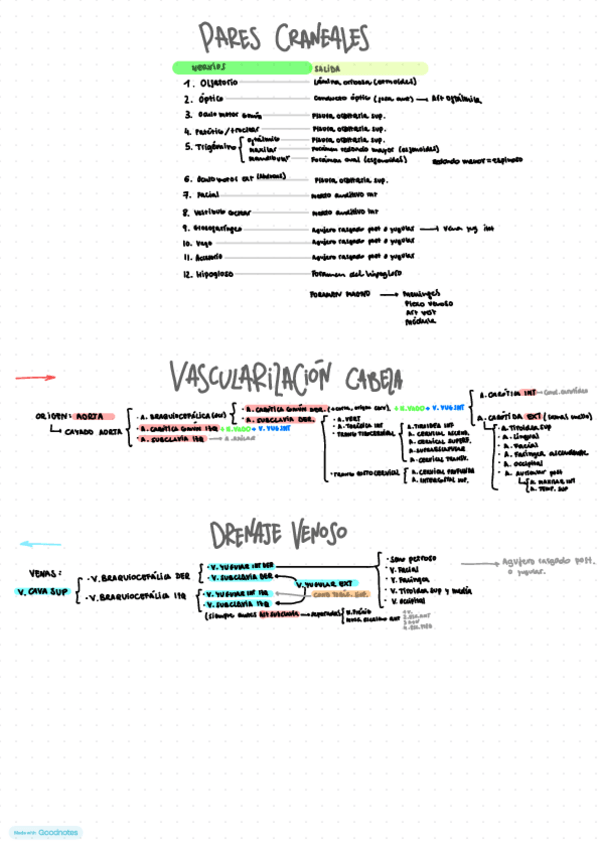 PARES CRANEALES
NERVIOS SALIDA
1. Olfatorio Lámina cribosa (etmoides)
2. Óptico Conducto óptico → Art oftálmica
3. Oculo motor común Fisura orbitaria sup.
4. Patético/troclear Fisura orbitaria sup.
5. Trigémino oftálmico Fisura orbitaria sup.
maxilar Foramen redondo mayor (esfenoides)
mandibular Foramen oval (esfenoides) redondo mayor = espinoso
6. Oculo motor ext (Abducens) Fisura orbitaria sup.
7. Facial Meato auditivo int
8. Vestibulo coclear Meato auditivo int
9. Glosofaríngeo Agujero rasgado post o yugular → Vena yug int
10. Vago Agujero rasgado post o yugular
11. Accesorio Agujero rasgado post o yugular
12. Hipogloso Foramen del hipogloso
FORAMEN MAGNO → Meninges
Plexo venoso
Art vert
Médula
VASCULARIZACIÓN CABEZA
ORIGEN: AORTA
CAYADO AORTA
· A. BRAQUIOCEFÁLICA (der)
· A. CARÓTICA COMÚN IZQ + N. VAGO + V. YUG INT
· A. SUBCLAVIA IZQ → A. AXILAR
· A. CARÓTICA COMÚN DER. + N. VAGO + V. YUG INT
· A. SUBCLAVIA DER.
· A. VERT
· A. TORÁCICA INT
· TRONCO TIROCERVICAL
A. TIROIDEA INF
A. CERVICAL ASCEND.
A. CERVICAL SUPERF.
A. SUPRAESCAPULAR
A. CERVICAL TRANSV.
· TRONCO COSTOCERVICAL
A. CERVICAL PROFUNDA
A. INTERCOSTAL SUP.
A. CARÓTIDA INT
A. CARÓTIDA EXT
A. Tiroidea sup
A. Lingual
A. Facial
A. Faríngea ascendente
A. Occipital
A. auricular post
A. MAXILAR INT
A. TEMP. SUP
DRENAJE VENOSO
VENAS:
V. CAVA SUP
· V. BRAQUIOCEFÁLICA DER
· V. BRAQUIOCEFÁLICA IZQ
· V. YUGULAR INT DER
· V. SUBCLAVIA DER
V. YUGULAR EXT
· V. YUGULAR INT IZQ
· V. SUBCLAVIA IZQ
· Seno petroso
· V. Facial
· V. Faríngea
· V. Tiroidea sup y media
· V. occipital
Agujero rasgado post.
o yugular.
Made with Goodnotes